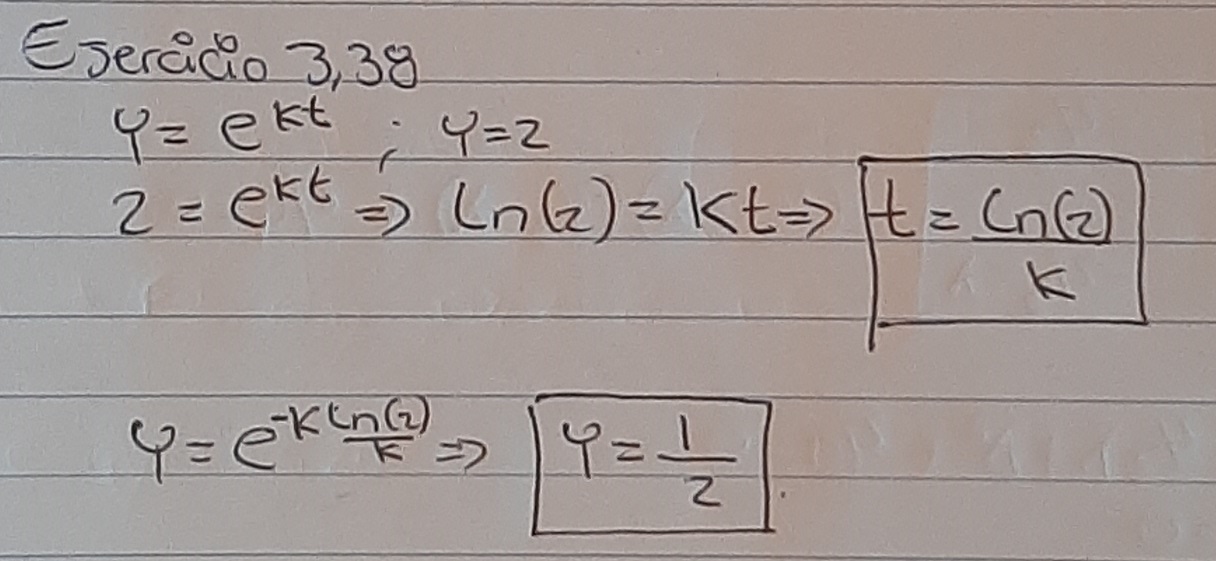 Ejercicio 3,38
y = e^{kt} ; y = 2
2 = e^{kt} ⇒ Ln(2) = kt ⇒ t = Ln(2)/k
y = e^{-k Ln(2)/k} ⇒ y = 1/2.